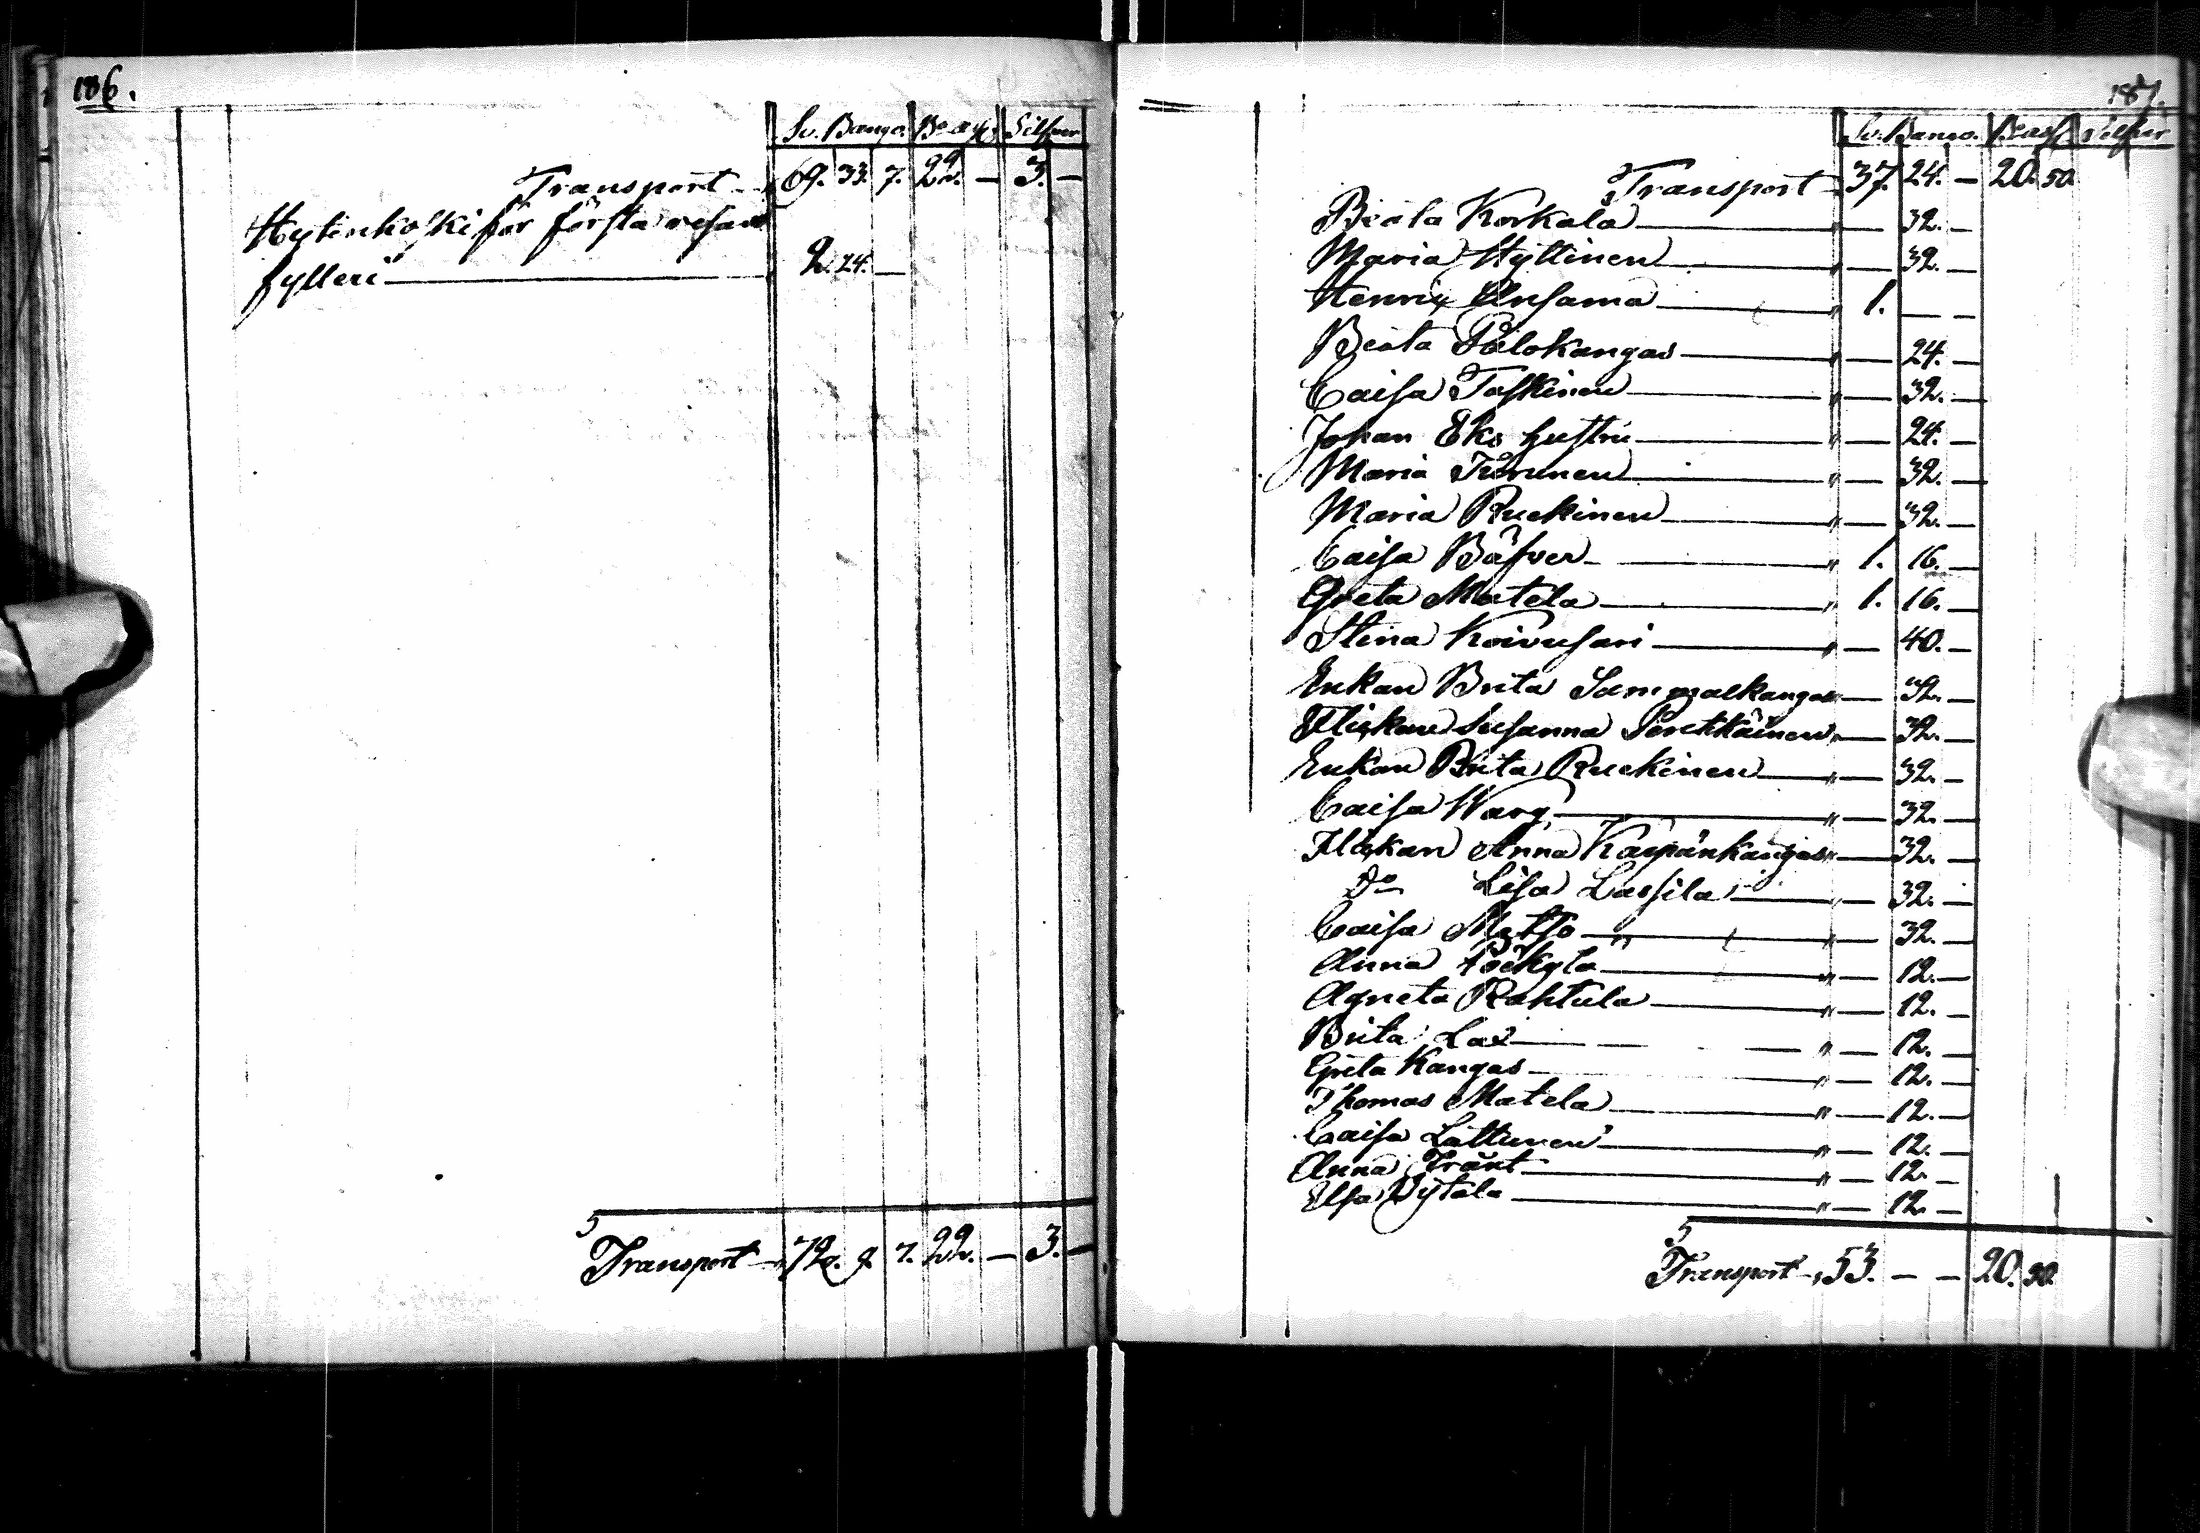 186.
Sv. Banco. Bo ass. Silfver
Transport 69. 33. 7. 22. — 3. —
Hytinkoski för första resan
fylleri 2. 24. —
Transport 72. 9. 7. 22. — 3. —
187.
Sv. Banco. Bo ass. Silfver
Transport 37. 24. — 20. 50.
Beata Korkala " — 32. —
Maria Hyttinen " — 32. —
Henric Ansama " 1. — —
Beata Palokangas " — 24. —
Caisa Taskinen " — 32. —
Johan Eks hustru " — 24. —
Maria Torvinen " — 32. —
Maria Ruckinen " — 32. —
Caisa Bäfver " 1. 16. —
Greta Matela " 1. 16. —
Stina Koivusari " — 40. —
Enkan Brita Sammalkangas — 32. —
Flickan Susanna Penttäinen " — 32. —
Enkan Brita Ruckinen " — 32. —
Caisa Warg " — 32. —
Flickan Anna Karpänkangas " — 32. —
Do Lisa Lassila " — 32. —
Caisa Matso " — 32. —
Anna " — 12. —
Agneta Rahtula " — 12. —
Brita Lax " — 12. —
Greta Kangas " — 12. —
Thomas Matela " — 12. —
Caisa Lättunen " — 12. —
Anna Trant " — 12. —
Elsa " — 12. —
Transport 53. — — 20. 50.